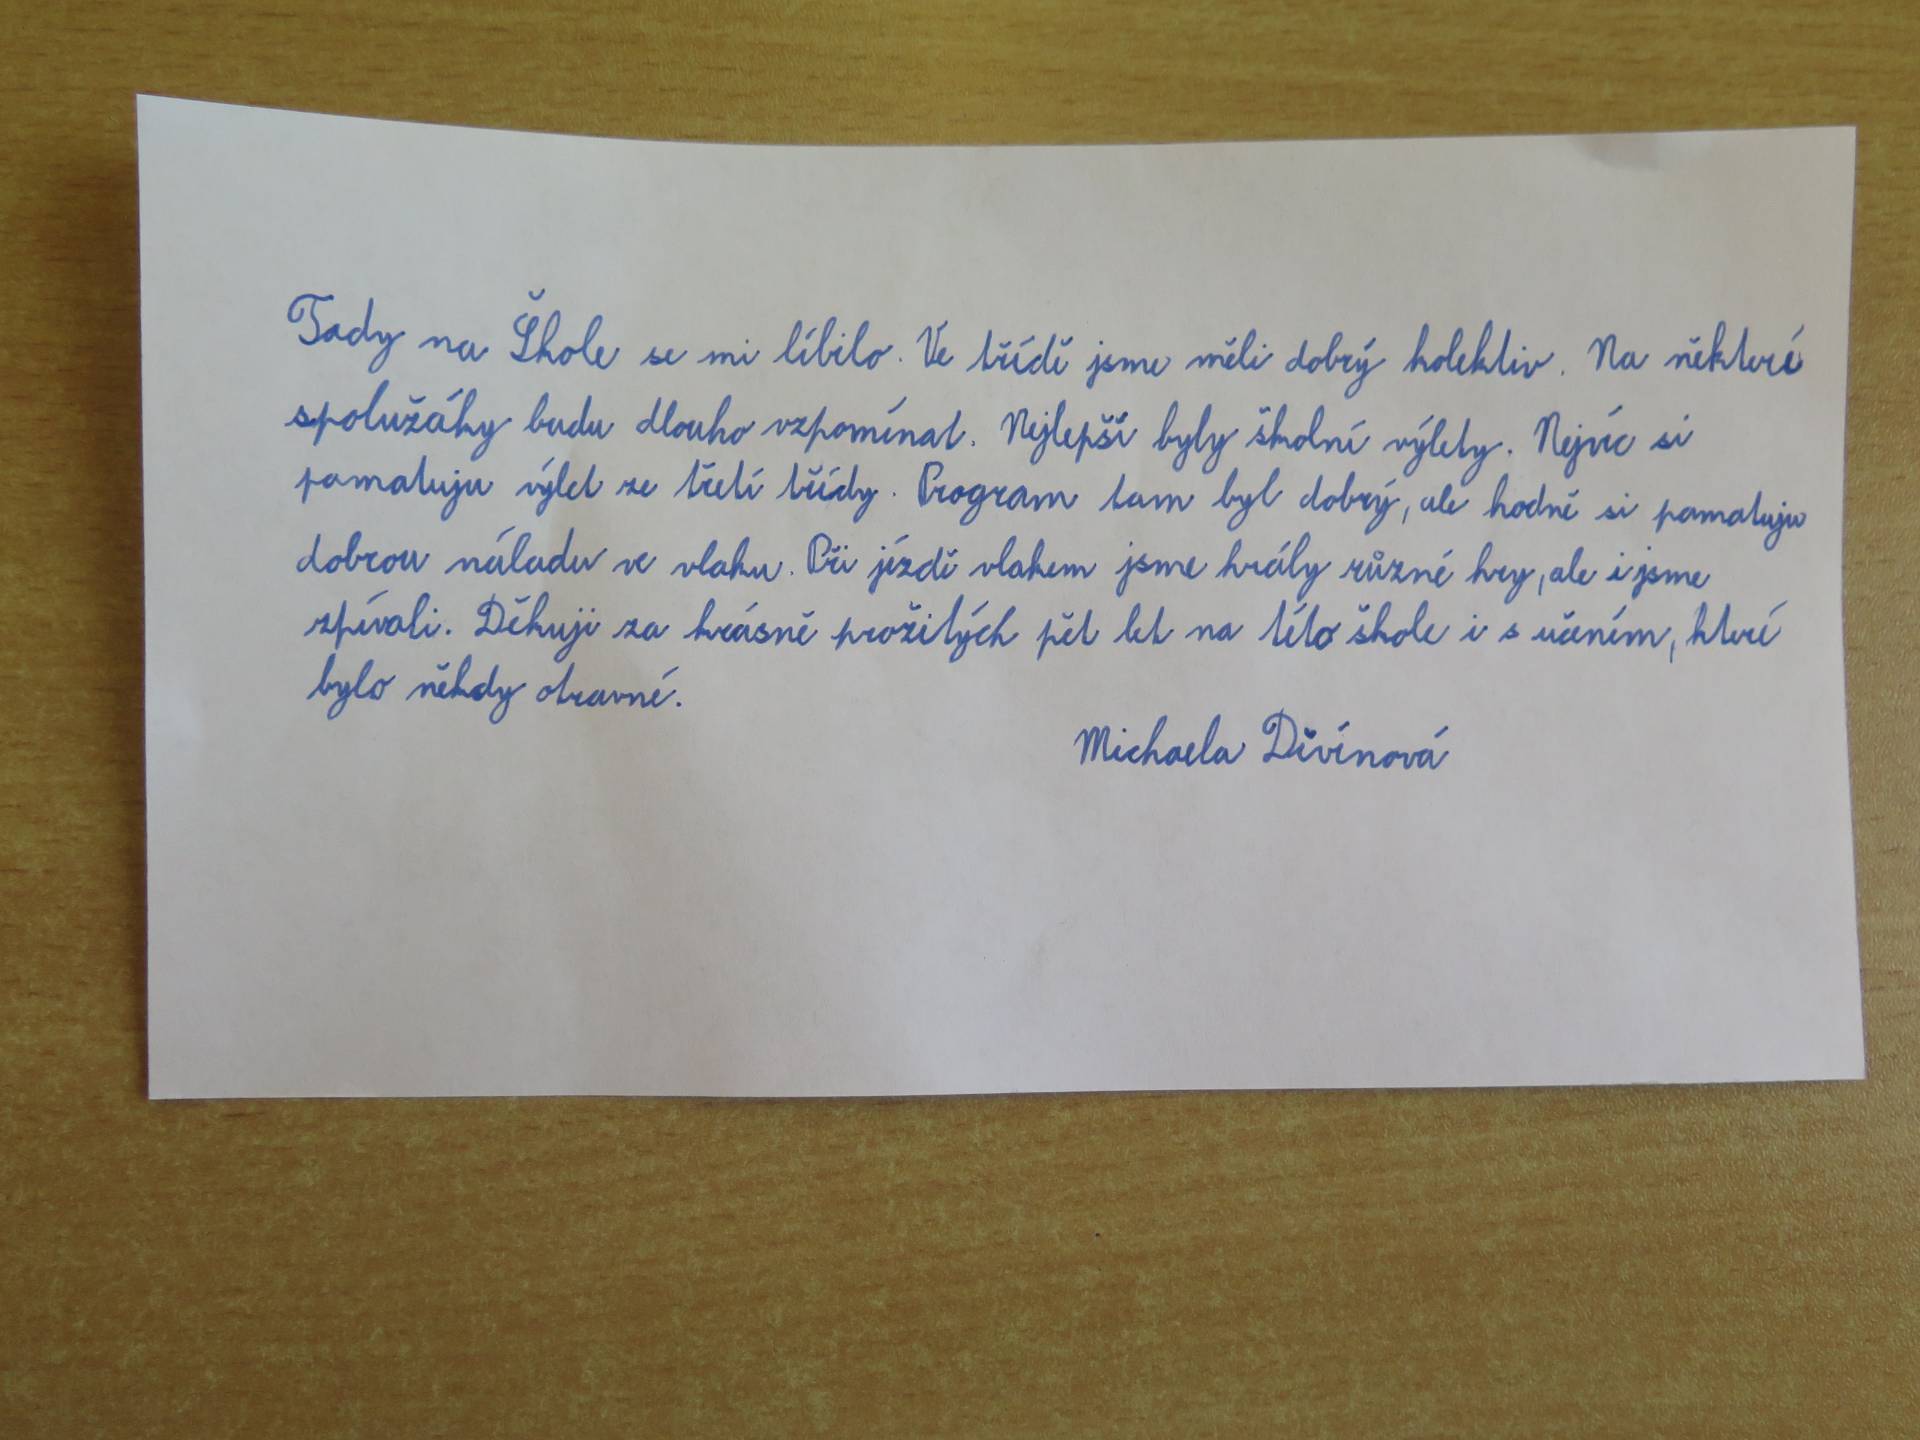 Tady na Škole se mi líbilo. Ve třídě jsme měli dobrý kolektiv. Na některé
spolužáky budu dlouho vzpomínat. Nejlepší byly školní výlety. Nejvíc si
pamatuju výlet ze třetí třídy. Program tam byl dobrý, ale hodně si pamatuju
dobrou náladu ve vlaku. Při jízdě vlakem jsme hrály různé hry, ale i jsme
zpívali. Děkuji za krásně prožitých pět let na této škole i s učením, které
bylo někdy otravné.
Michaela Divínová